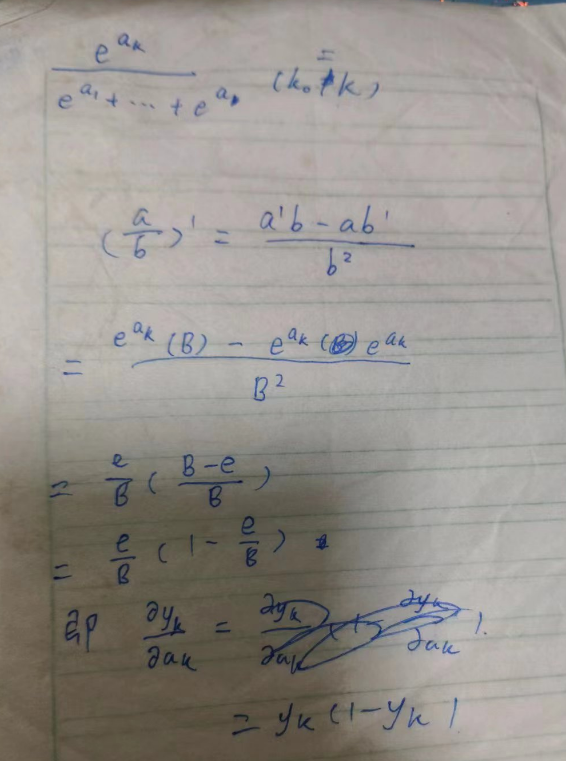 e^{a_k} / (e^{a_1} + ... + e^{a}) (k_0 = k)
(a/b)' = (a'b - ab') / b^2
= (e^{a_k} (B) - e^{a_k} e^{a_k}) / B^2
= e/B ( (B-e)/B )
= e/B ( 1 - e/B )
即 ∂y_k/∂a_k =
= y_k (1 - y_k)